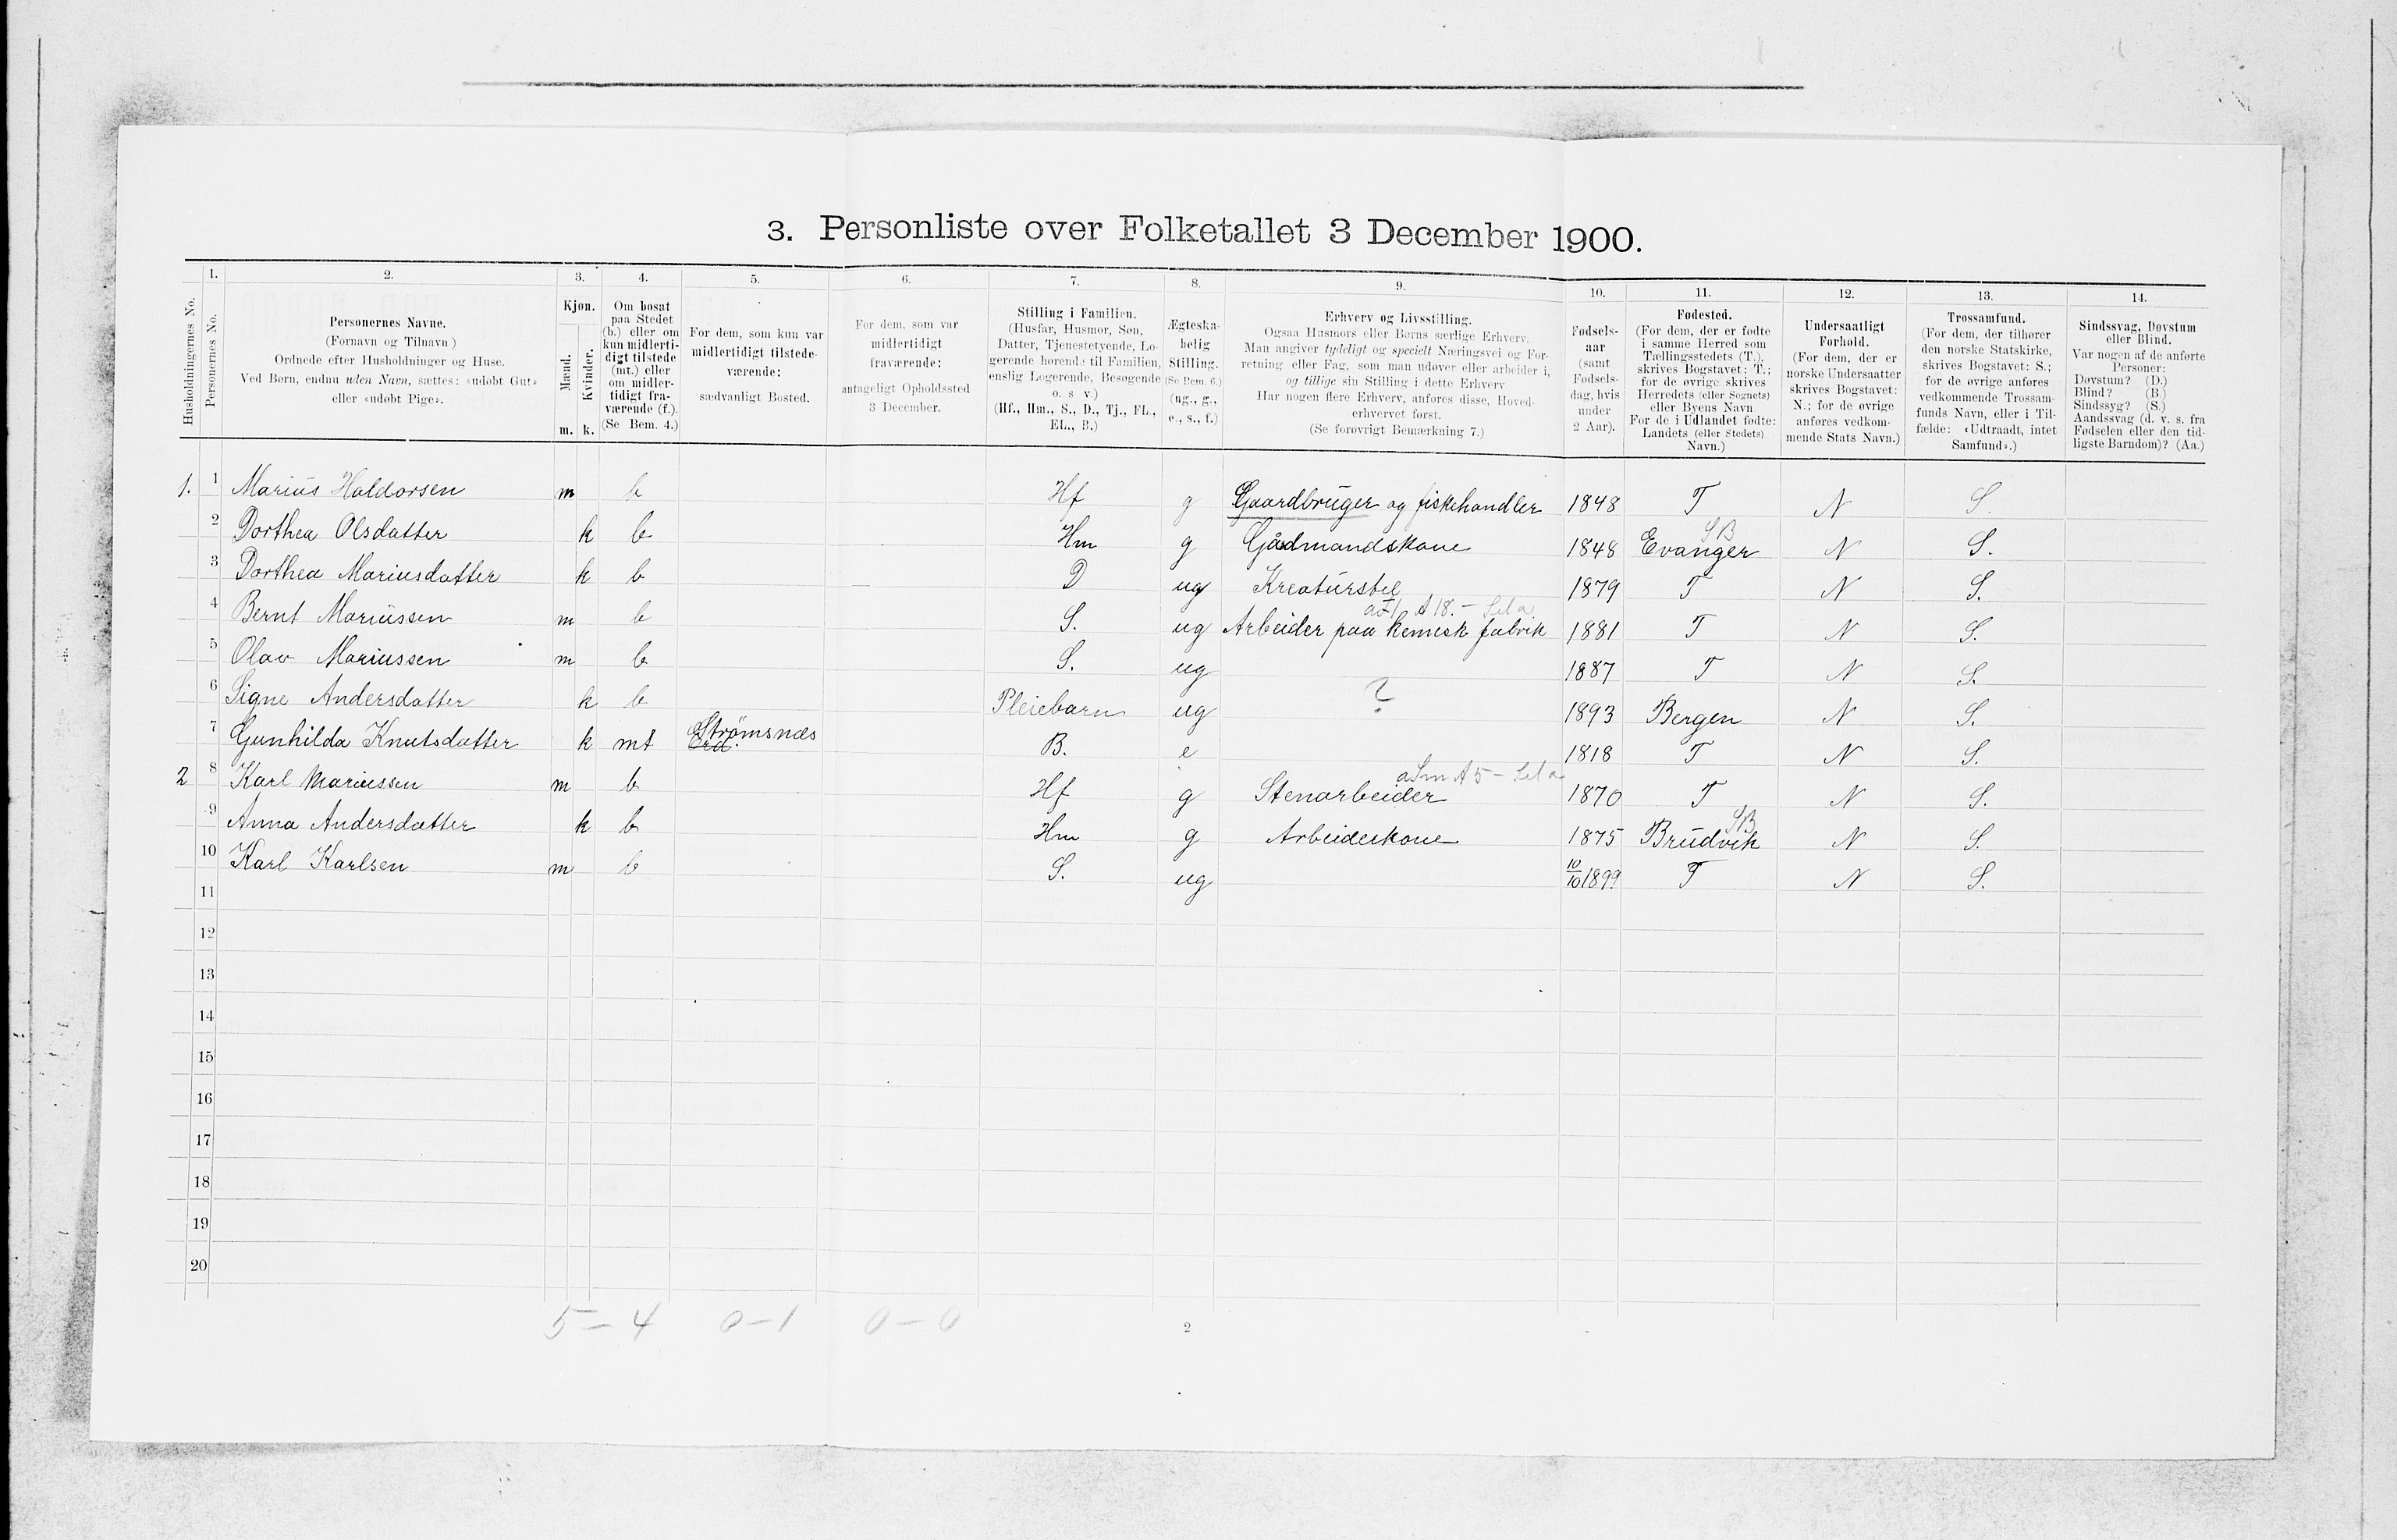 3. Personliste over Folketallet 3 December 1900.
1. 2. 3. 4. 5. 6. 7. 8. 9. 10. 11. 12. 13. 14.
Husholdningernes No.
Personernes No.
Personernes Navne.
(Fornavn og Tilnavn)
Ordnede efter Husholdninger og Huse.
Ved Børn, endnu uden Navn, sættes: «udøbt Gut»
eller «udøbt Pige».
Kjøn.
Mænd.
Kvinder.
m. k.
Om bosat
paa Stedet
(b.) eller om
kun midlerti-
digt tilstede
(mt.) eller
om midler-
tidigt fra-
værende (f.).
(Se Bem. 4.)
For dem, som kun var
midlertidigt tilstede-
værende:
sædvanligt Bosted.
For dem, som var
midlertidigt
fraværende:
antageligt Opholdssted
3 December.
Stilling i Familien.
(Husfar, Husmor, Søn,
Datter, Tjenestetyende, Lo-
gerende hørende til Familien,
enslig Logerende, Besøgende
o. s. v.)
(Hf., Hm., S., D., Tj., FL.,
EL., B.)
Ægteska-
belig
Stilling.
(Se Bem. 6.)
(ug., g.,
e., s., f.)
Erhverv og Livsstilling.
Ogsaa Husmors eller Børns særlige Erhverv.
Man angiver tydeligt og specielt Næringsvei og For-
retning eller Fag, som man udøver eller arbeider i,
og tillige sin Stilling i dette Erhverv
Har nogen flere Erhverv, anføres disse, Hoved-
erhvervet først.
(Se forøvrigt Bemærkning 7.)
Fødsels-
aar
(samt
Fødsels-
dag, hvis
under
2 Aar).
Fødested.
(For dem, der er fødte
i samme Herred som
Tællingsstedets (T.),
skrives Bogstavet: T.;
for de øvrige skrives
Herredets (eller Sognets)
eller Byens Navn
For de i Udlandet fødte:
Landets (eller Stedets)
Navn.)
Undersaatligt
Forhold.
(For dem, der er
norske Undersaatter
skrives Bogstavet:
N.; for de øvrige
anføres vedkom-
mende Stats Navn.)
Trossamfund.
(For dem, der tilhører
den norske Statskirke,
skrives Bogstavet: S.;
for de øvrige anføres
vedkommende Trossam-
funds Navn, eller i Til-
fælde: «Udtraadt, intet
Samfund».)
Sindssvag, Døvstum
eller Blind.
Var nogen af de anførte
Personer:
Døvstum? (D.)
Blind? (B.)
Sindssyg? (S.)
Aandssvag (d. v. s. fra
Fødselen eller den tid-
ligste Barndom)? (Aa.)
1. 1 Marius Haldorsen m b Hf g Gaardbruger og fiskehandler 1848 T N S.
SB
2 Dorthea Olsdatter k b Hm g Gådmandskone 1848 Evanger N S.
3 Dorthea Mariusdatter k b D ug Kreaturstel 1879 T N S.
4 Bernt Mariussen m b S. ug Arbeider paa kemisk fabrik 1881 T N S.
5 Olav Mariussen m b S. ug 1887 T N S.
6 Signe Andersdatter k b Pleiebarn ug ? 1893 Bergen N S.
7 Gunhilda Knutsdatter k mt Strömsnæs B. e 1818 T N S.
2 8 Karl Mariussen m b Hf g Stenarbeider 1870 T N S.
SB
9 Anna Andersdatter k b Hm g Arbeideskone 1875 Brudvik N S.
10 Karl Karlsen m b S. ug 10/10 1899 T N S.
11
12
13
14
15
16
17
18
19
20
5 - 4 0 - 1 0 - 0
2